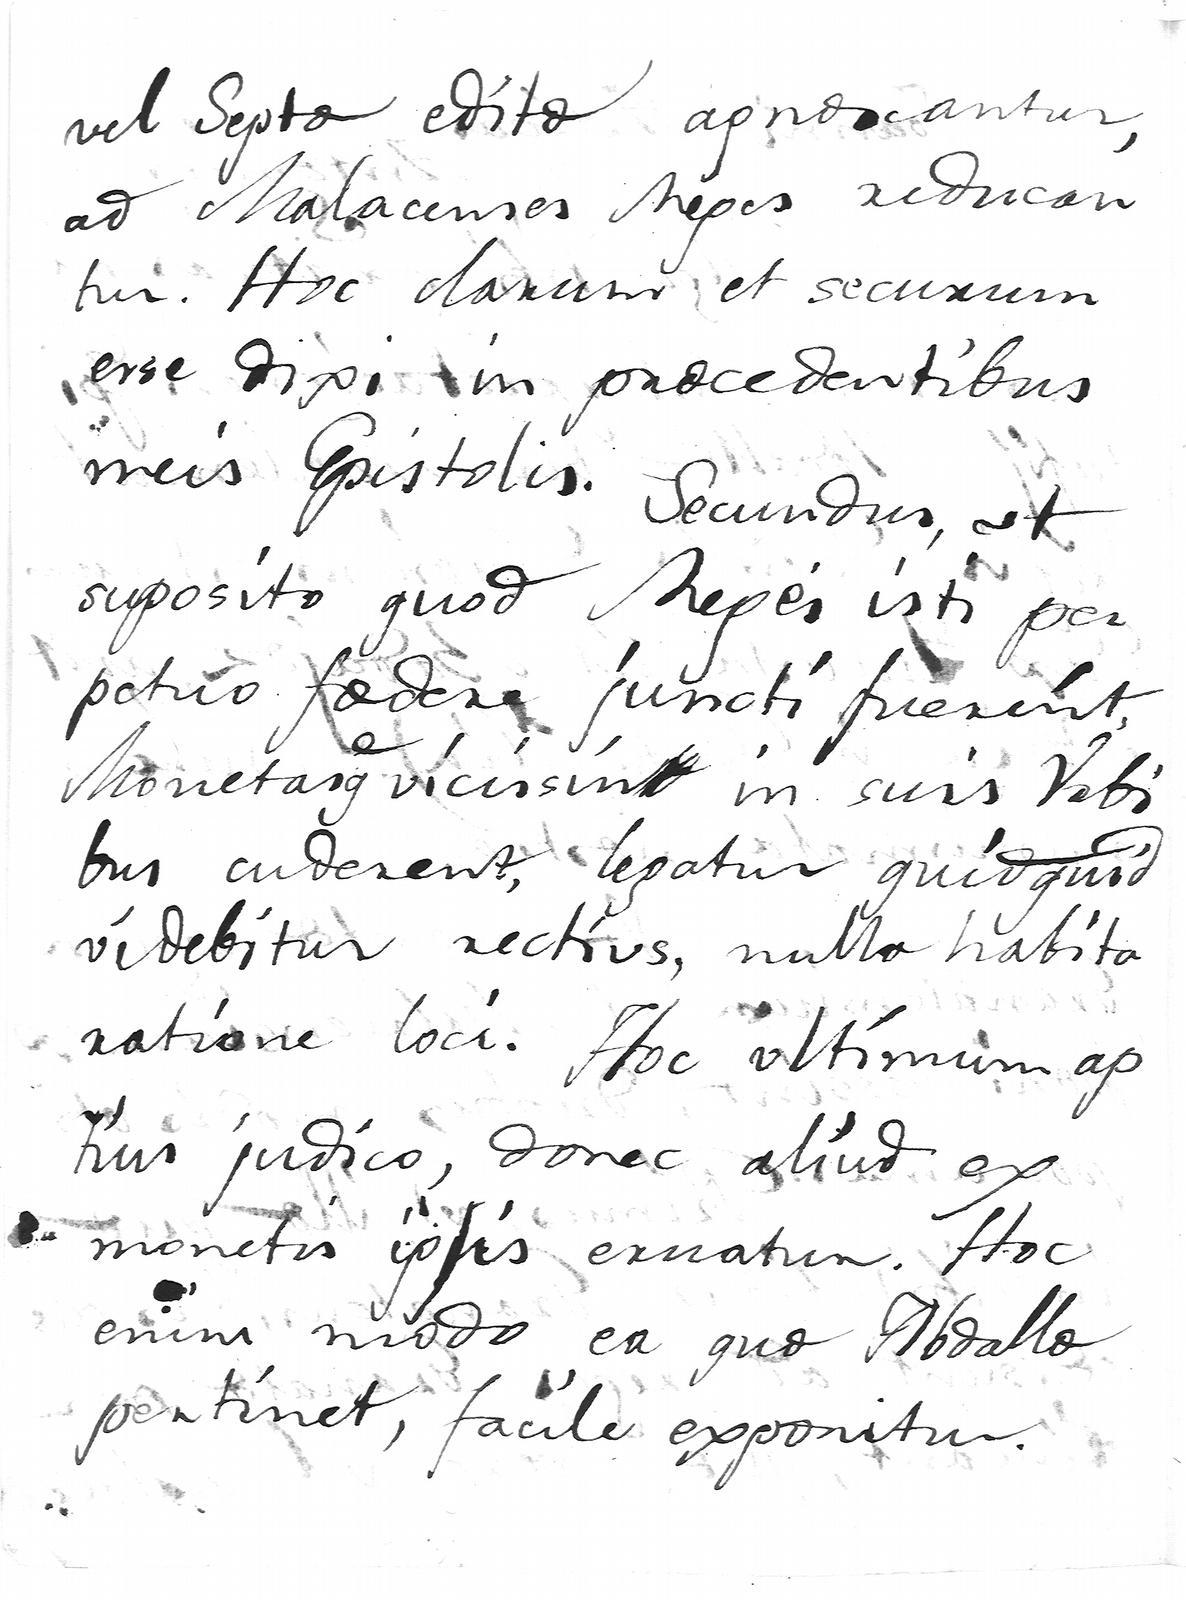 vel Septæ editæ agnoscantur,
ad Malacenses Reges reducan
tur. Hoc clarum et securum
esse dixi in præcedentibus
meis Epistolis. Secundus, est
suposito quod Reges isti per
petuo fædere juncti fuerint,
Monetasq̃ vicissim in suis Vrbi
bus cuderent, legatur quidquid
videbitur rectius, nulla habita
ratione loci. Hoc vltimum ap
tius judico, donec aliud ex
monetis ipsis eruatur. Hoc
enim modo ea quæ Abdallæ
pertinet, facile exponitur.